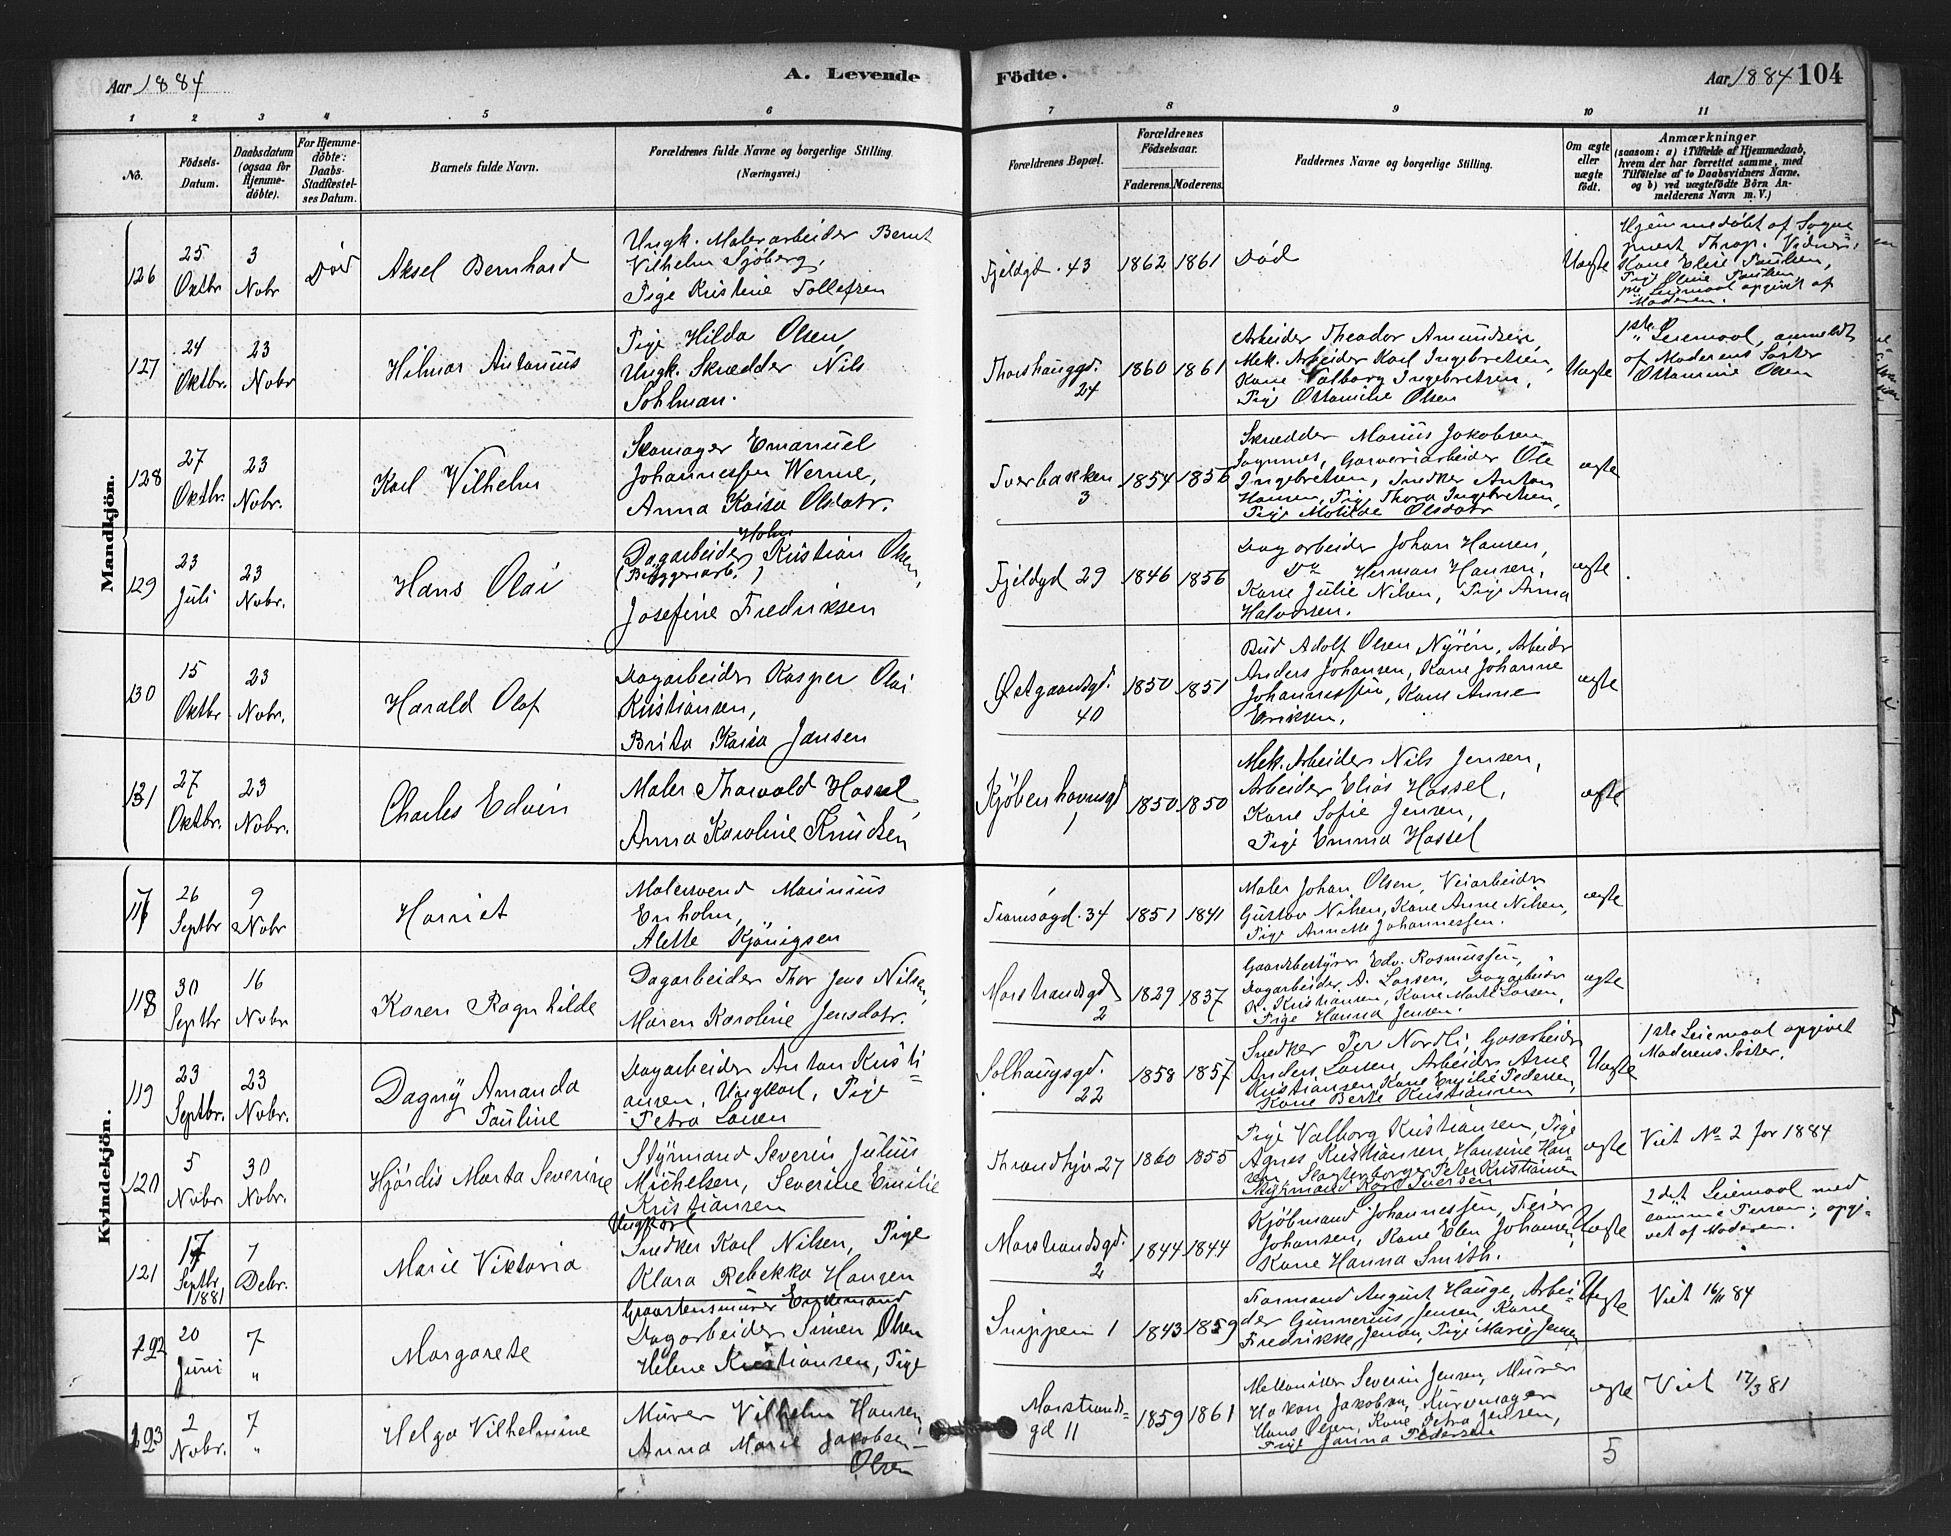 Aar 1884
A. Levende
Födte.
Aar 1884 104
1 2 3 4 5 6 7 8 9 10 11
No.
Födsels-
Datum.
Daabsdatum
(ogsaa for
Hjemme-
döbte).
For Hjemme-
döbte:
Daabs-
Stadfæstel-
ses Datum.
Barnets fulde Navn.
Forældrenes fulde Navne og borgerlige Stilling.
(Næringsvei.)
Forældrenes Bopæl.
Forældrenes
Födselsaar.
Faderens. Moderens.
Faddernes Navne og borgerlige Stilling.
Om ægte
eller
uægte
födt.
Anmærkninger
(saasom: a) i Tilfælde af Hjemmedaab,
hvem der har forrettet samme, med
Tilföielse af to Daabsvidners Navne,
og b) ved uægtefödte Börn An-
melderens Navn m. V.)
Mandkjön.
126
25
Oktbr
3
Nobr
Död
Aksel Bernhard
Ungk. Malerarbeider Bernt
Vilhelm Sjöberg,
Pige Kristine Tollefsen
Fjeldgd. 43
1862 1861
Död
Uægte
Hjemmedöbt af Sogne
prest Throp. Vidner:
Kone Elise Paulsen,
Pige Oline Paulsen
Leiemaal opgivet af
Moderen.
127
24
Oktbr.
23
Nobr
Hilmar Antonius
Pige Hilda Olsen,
Ungk. Skrædder Nils
Sohlman.
Thorshauggd.
24
1860 1861
Arbeider Theodor Amundsen,
Mek. Arbeider Karl Ingebretsen,
Kone Valborg Ingebretsen,
Pige Ottomine Olsen
Uægte
1ste Leiemaal, anmeldt
af Moderens Söster
Ottomine Olsen
128
27
Oktbr.
23
Nobr.
Karl Vilhelm
Skomager Emanuel
Johannessen Werme,
Anna Kaisa Olsdatr.
Tverbakken
3
1854 1856
Skrædder Marius Jakobsen
Garveriarbeider Ole
Ingebretsen, Snedker Anton
Hansen, Pige Thora Ingebretsen,
Pige Matilde Olsdatr
ægte
129
23
Juli
23
Nobr.
Hans Olai
Holm
Dagarbeider Kristian Olsen,
(Bryggeriarb.)
Josefine Fredriksen
Fjeldgd 29
1846 1856
Dagarbeider Johan Hansen,
Do Herman Hansen,
Kone Julie Nilsen, Pige Anna
Halvorsen.
ægte
130
15
Oktbr
23
Nobr.
Harald Olaf
Dagarbeider Kasper Olai
Kristiansen,
Brita Kaisa Jansen
Østgaardsgd.
40
1850 1851
Bud Adolf Olsen Nyrén, Arbeider
Anders Johansen, Kone Johanne
Johannessen, Kone Anne
Eriksen.
ægte
131
27
Oktbr.
23
Nobr.
Charles Edvin
Maler Thorvald Hassel,
Anna Karoline Knudsen
Kjöbenhavnsgd
1
1850 1850
Mek. Arbeider Nils Jensen,
Arbeider Elias Hassel,
Kone Sofie Jensen,
Pige Emma Hassel
ægte
Kvindekjön.
117
26
Septbr
9
Nobr
Harriet
Malersvend Marinius
Enholm,
Alette Kjönigsen
Tromsögd. 34
1851 1841
Maler Johan Olsen, Veiarbeider
Gustav Nilsen, Kone Anne Nilsen,
Pige Annette Johannessen.
ægte
118
30
Septbr
16
Nobr
Karen Ragnhilde
Dagarbeider Thor Jens Nilsen,
Maren Karoline Jensdatr.
Marstrandsgd
2
1829 1837
Gaardbestyrer Edv. Rasmussen,
Dagarbeider A. Larsen, Dagarbeider
K. Kristiansen, Kone Marte Larsen,
Pige Hanna Jensen.
ægte
119
23
Septbr.
23
Nobr.
Dagny Amanda
Pauline
Dagarbeider Anton Kristi-
ansen, Ungkarl, Pige
Petra Larsen
Solhaugsgd.
22
1858 1857
Snedker Per Nordli, Gasarbeider
Anders Larsen, Arbeider Arne
Kristiansen, Kone Emilie Pedersen,
Kone Berte Kristiansen
Uægte
1ste Leiemaal opgivet
Moderens Söster.
120
5
Nobr.
30
Nobr.
Hjördis Marta Severine
Styrmand Severin Julius
Michelsen, Severine Emilie
Kristiansen
Throndhjv. 27
1860 1855
Pige Valborg Kristiansen, Pige
Agnes Kristiansen, Hansine Han-
sen, Peter Kristiansen
Styrmand Karl Iversen
ægte
Viet No 2 for 1884
121
17
Septbr
1881
7
Debr.
Marie Viktoria
Ungkarl
Snedker Karl Nilsen, Pige
Klara Rebekka Hansen
Marstrandsgd.
2
1844 1844
Kjöbmand Johannessen, Feier
Johansen, Kone Elen Johansen,
Kone Hanna Smith.
Uægte
2det Leiemaal med
samme Person, opgi-
vet af Moderen.
122
20
Juni
7
"
Margarete
Enkemand
Dagarbeider Simen Olsen
Helene Kristiansen, Pige
Snippen 1
1843 1859
Formand August Hauge, Arbei-
der Gunnerius Jensen, Kone
Fredrikke Jensen, Pige Marie Jensen
Uægte
Viet 16/11 84
123
2
Nobr.
7
"
Helga Vilhelmine
Murer Vilhelm Hansen,
Anna Marie Jakobsen
Olsen
Marstrands-
gd 11
1859 1861
Mekaniker Severin Jensen, Murer
Hakon Jakobsen, Kurvmager
Hans Olsen, Kone Petra Jensen,
Pige Janna Pedersen
ægte
Viet 17/3 81
5